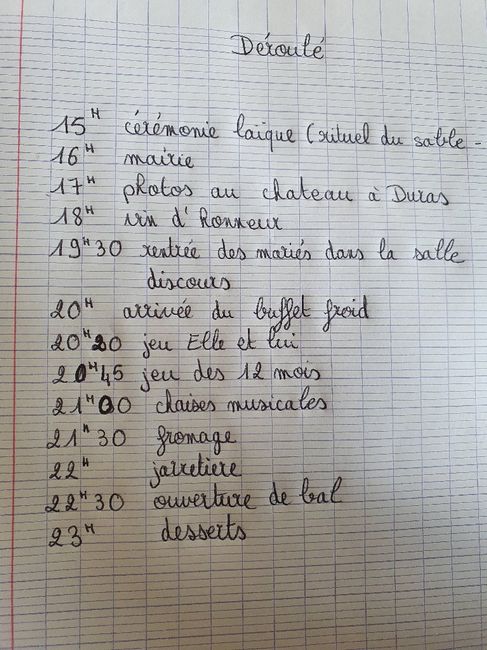 Déroulé
15H cérémonie laïque (rituel du sable -
16H mairie
17H photos au chateau à Duras
18H vin d'honneur
19H30 rentrée des mariés dans la salle
discours
20H arrivée du buffet froid
20H20 jeu Elle et lui
20H45 jeu des 12 mois
21H00 chaises musicales
21H30 fromage
22H jarretiere
22H30 ouverture de bal
23H desserts